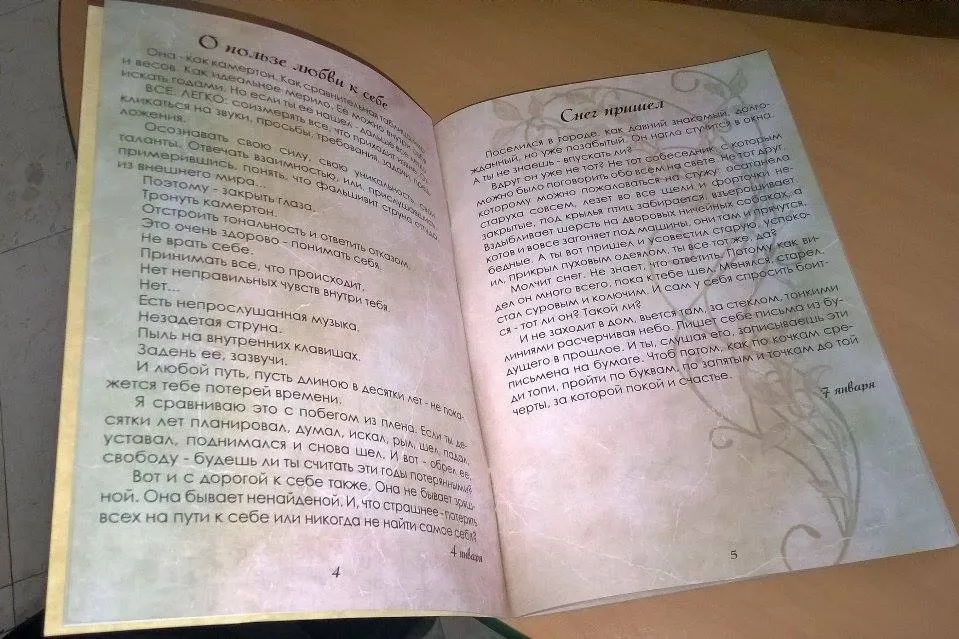 О пользе любви к себе
Она - как камертон. Как сравнительная таблица мер
и весов. Как идеальное мерило. Ее можно внутри себя
искать годами. Но если ты ее нашел - дальше все
ВСЕ. ЛЕГКО: соизмерять все, что приходит извне. От-
кликаться на звуки, просьбы, требования, задачи, пред-
ложения.
Осознавать свою силу, свою уникальность, свои
таланты. Отвечать взаимностью, или, прислушавшись,
примерившись, понять, что фальшивит струна оттуда,
из внешнего мира...
Поэтому - закрыть глаза.
Тронуть камертон.
Отстроить тональность и ответить отказом.
Это очень здорово - понимать себя.
Не врать себе.
Принимать все, что происходит.
Нет неправильных чувств внутри тебя.
Нет...
Есть непрослушанная музыка.
Незадетая струна.
Пыль на внутренних клавишах.
Задень ее, зазвучи.
И любой путь, пусть длиною в десятки лет - не пока-
жется тебе потерей времени.
Я сравниваю это с побегом из плена. Если ты де-
сятки лет планировал, думал, искал, рыл, шел, падал,
уставал, поднимался и снова шел. И вот - обрел ее,
свободу - будешь ли ты считать эти годы потерянными?
Вот и с дорогой к себе также. Она не бывает зряш-
ной. Она бывает ненайденой. И, что страшнее - потерять
всех на пути к себе или никогда не найти самое себя?
4 января
4
Снег пришел
Поселился в городе, как давний знакомый, долго-
жданный, но уже позабытый. Он нагло стучится в окна.
А ты не знаешь - впускать ли?
Вдруг он уже не тот? Не тот собеседник, с которым
можно было поговорить обо всем на свете. Не тот друг,
которому можно пожаловаться на стужу: осатанела
старуха совсем, лезет во все щели и форточки не-
закрытые, под крылья птиц забирается, взъерошивает.
Вздыбливает шерсть на дворовых ничейных собаках, а
котов и вовсе загоняет под машины, они там и прячутся,
бедные. А ты вот пришел и усовестил старую, успоко-
ил, прикрыл пуховым одеялом, ты все тот же, да?
Молчит снег. Не знает, что ответить. Потому как ви-
дел он много всего, пока к тебе шел, менялся, старел,
стал суровым и колючим. И сам у себя спросить боит-
ся - тот ли он? Такой ли?
И не заходит в дом, вьется там, за стеклом, тонкими
линиями расчерчивая небо. Пишет себе письма из бу-
дущего в прошлое. И ты, слушая его, записываешь эти
письмена на бумаге. Чтоб потом, как по кочкам сре-
ди топи, пройти по буквам, по запятым и точкам до той
черты, за которой покой и счастье.
7 января
5